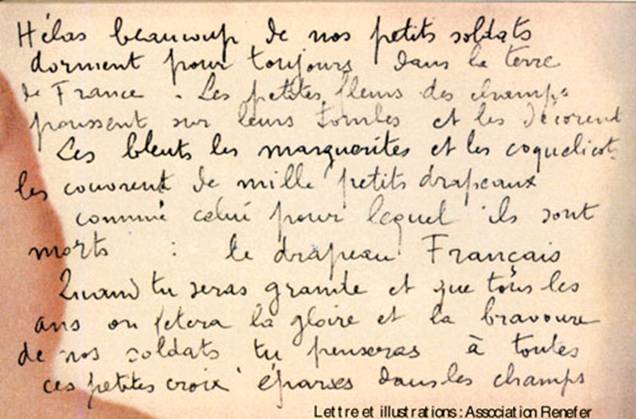 Hélas beaucoup de nos petits soldats
dorment pour toujours dans la terre
de France. Les petites fleurs des champs
poussent sur leurs tombes et les décorent
Les bleuts les marguerites et les coquelicots
les couvrent de mille petits drapeaux
comme celui pour lequel ils sont
morts : le drapeau Français
Quand tu seras grande et que tous les
ans on fêtera la gloire et la bravoure
de nos soldats tu penseras à toutes
ces petites croix éparses dans les champs
Lettre et illustrations : Association Renefer